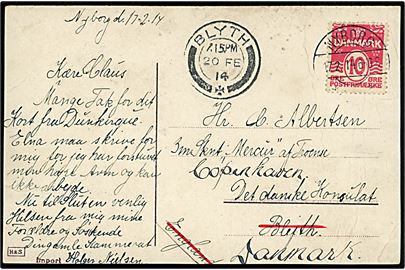 Nyborg d. 17-2.14
Kære Claus
Mange Tak for dit
Kort fra Dünkirque.
Elna maa skrive for
mig for jeg har forstuvet
min højre Arm og kan
ikke arbejde.
Nu til Slutten venlig
Hilsen fra mig mine
Forældre og Søskende
Din gamle Kammerat
Holger Nielsen
H&S
Import
BLYTH
7.15PM
20 FE
14
NYBORG
DANMARK
10
ØRE
POSTFRIMÆRKE
Hr. C. Albertsen
3m Sknt. „Mercur" af Troense
Copenhagen
Det danske Konsulat
Blyth
England
Danmark.